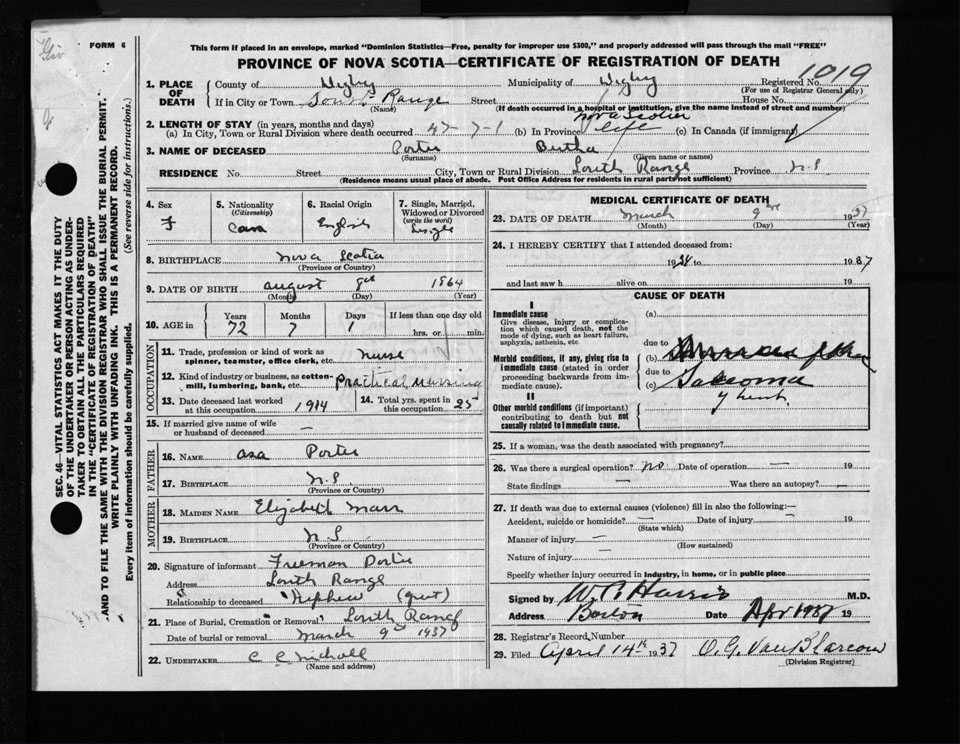 FORM 6
This form if placed in an envelope, marked "Dominion Statistics—Free, penalty for improper use $300," and properly addressed will pass through the mail "FREE"
PROVINCE OF NOVA SCOTIA—CERTIFICATE OF REGISTRATION OF DEATH
1. PLACE OF DEATH
County of Digby Municipality of Digby Registered No. 1019
(For use of Registrar General only)
If in City or Town South Range Street House No.
(Name) (If death occurred in a hospital or institution, give the name instead of street and number)
2. LENGTH OF STAY (in years, months and days) Nova Scotia
(a) In City, Town or Rural Division where death occurred 47-7-1 (b) In Province life (c) In Canada (if immigrant)
3. NAME OF DECEASED Porter Bertha
(Surname) (Given name or names)
RESIDENCE No. Street City, Town or Rural Division South Range Province N.S
(Residence means usual place of abode. Post Office Address for residents in rural parts not sufficient)
4. Sex F
5. Nationality (Citizenship) Cana
6. Racial Origin English
7. Single, Married, Widowed or Divorced (write the word) Single
8. BIRTHPLACE Nova Scotia
(Province or Country)
9. DATE OF BIRTH august 8 1864
(Month) (Day) (Year)
10. AGE in Years Months Days If less than one day old
72 7 1 hrs. or min.
OCCUPATION
11. Trade, profession or kind of work as spinner, teamster, office clerk, etc. nurse
12. Kind of industry or business, as cotton-mill, lumbering, bank, etc. Practical nursing
13. Date deceased last worked at this occupation 1914
14. Total yrs. spent in this occupation 25
15. If married give name of wife or husband of deceased —
FATHER
16. NAME asa Porter
17. BIRTHPLACE N.S
(Province or Country)
MOTHER
18. MAIDEN NAME Elizabeth Marr
19. BIRTHPLACE N.S
(Province or Country)
20. Signature of informant Freeman Porter
Address South Range
Relationship to deceased Nephew
21. Place of Burial, Cremation or Removal South Range
Date of burial or removal March 9 1937
22. UNDERTAKER C C Nicholl
(Name and address)
MEDICAL CERTIFICATE OF DEATH
23. DATE OF DEATH March 9 1937
(Month) (Day) (Year)
24. I HEREBY CERTIFY that I attended deceased from:
19 to 1937
and last saw h alive on 19
CAUSE OF DEATH
I
Immediate cause (a)
Give disease, injury or complication which caused death, not the mode of dying, such as heart failure, asphyxia, asthenia, etc
due to
Morbid conditions, if any, giving rise to immediate cause (stated in order proceeding backwards from immediate cause).
(b)
due to
(c) Sarcoma
II
Other morbid conditions (if important) contributing to death but not causally related to immediate cause.
25. If a woman, was the death associated with pregnancy?
26. Was there a surgical operation? no Date of operation — 19
State findings — Was there an autopsy? —
27. If death was due to external causes (violence) fill in also the following:—
Accident, suicide or homicide? — Date of injury — 19
(State which)
Manner of injury —
(How sustained)
Nature of injury —
Specify whether injury occurred in industry, in home, or in public place
Signed by Harris M.D.
Address Barton Date Apr 1937 19
28. Registrar's Record Number
29. Filed April 14th 1937 O. G. Van Blarcom
(Division Registrar)
SEC. 46—VITAL STATISTICS ACT MAKES IT THE DUTY OF THE UNDERTAKER OR PERSON ACTING AS UNDERTAKER TO OBTAIN ALL THE PARTICULARS REQUIRED IN THE "CERTIFICATE OF REGISTRATION OF DEATH" AND TO FILE THE SAME WITH THE DIVISION REGISTRAR WHO SHALL ISSUE THE BURIAL PERMIT.
WRITE PLAINLY WITH UNFADING INK. THIS IS A PERMANENT RECORD.
Every item of information should be carefully supplied. (See reverse side for instructions.)